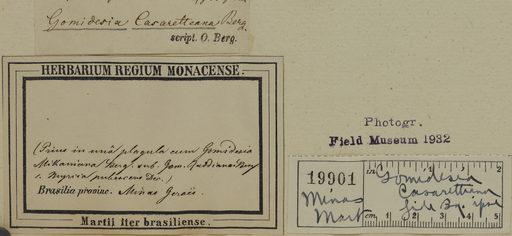 Gomidesia Casaretteana Berg.
script. O. Berg.
HERBARIUM REGIUM MONACENSE.
(Prius in una plagula cum Gomidesia
Mikaniana Berg. sub. Gom. Berg
s. Myrcia pubescens Dec.)
Brasilia provinc. Minas Geraës.
Martii iter brasiliense.
Photogr.
Field Museum 1932
19901
Minas
Mart
in. 1 2
cm. 1 2 3 4 5
Gomidesia
Casarettiana
fide Bg. ipse